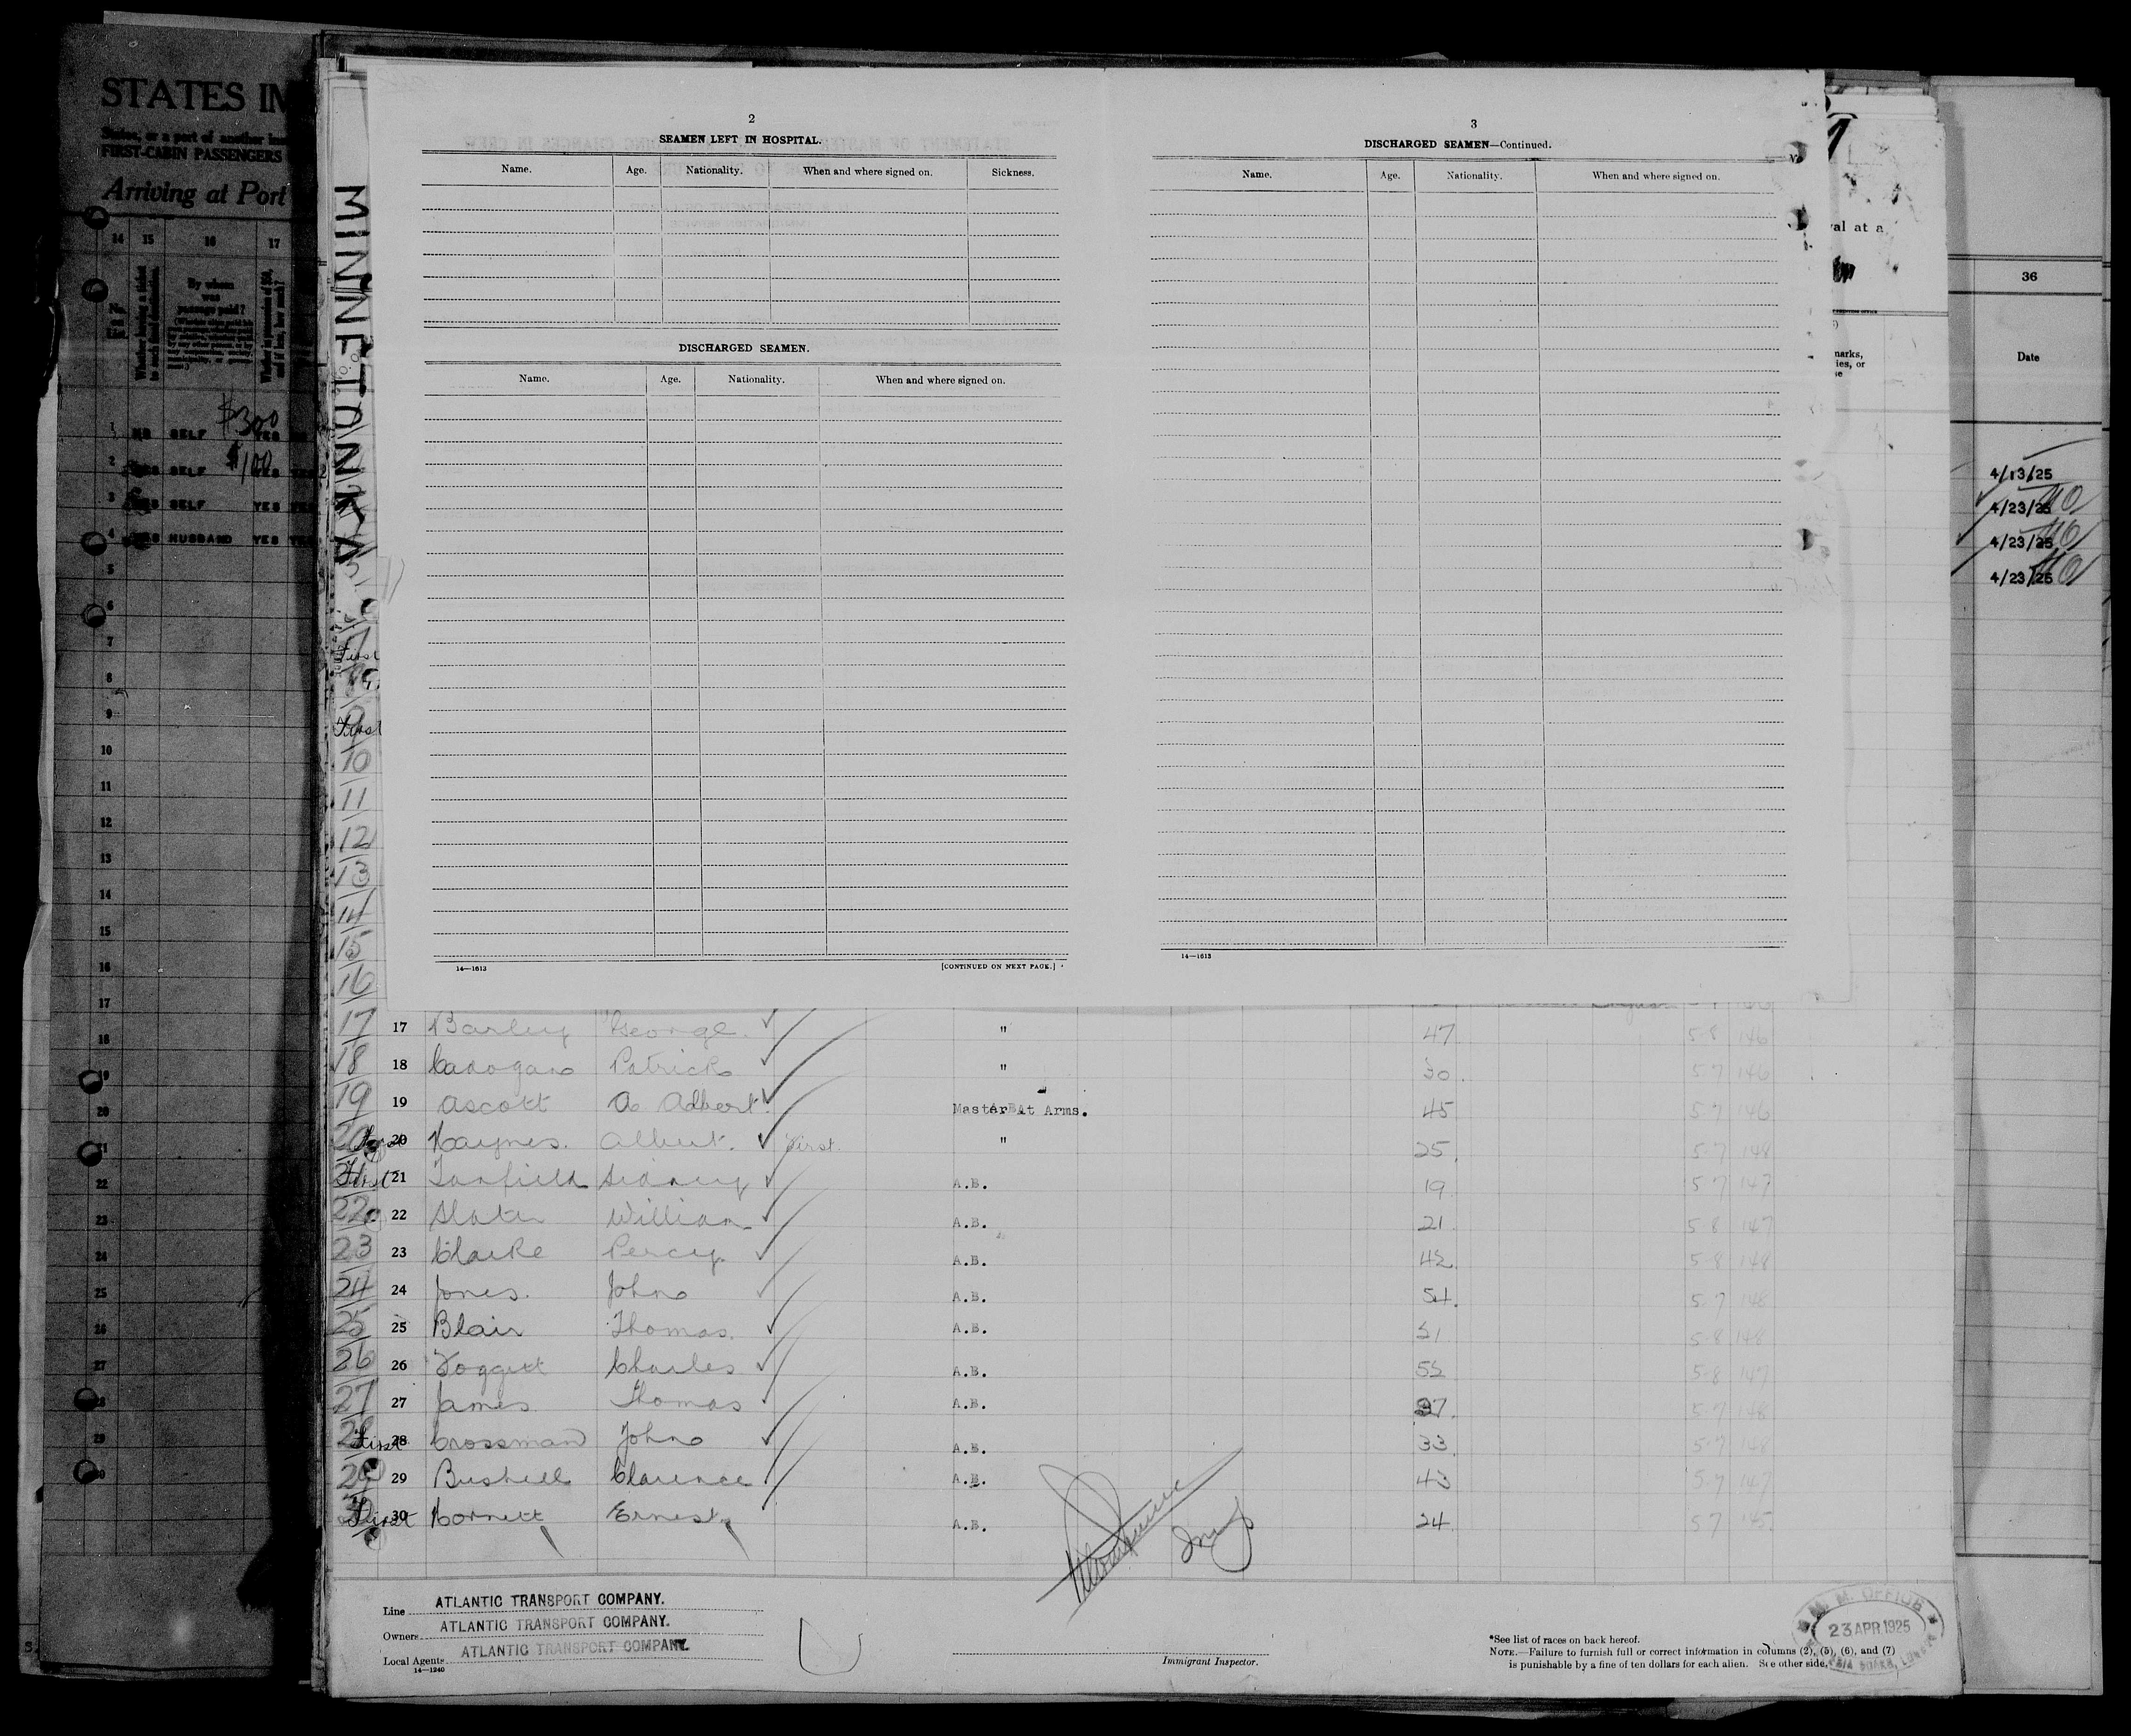 STATES IM
States, or a part of another ins
FIRST-CABIN PASSENGERS
Arriving at Port
14 15 16 17
Whether having a ticket
By whom
was
passage paid?
1 NO SELF $300 YES
2 YES SELF $100 YES
3 YES SELF YES YES
4 YES HUSBAND YES YES
5
6
7
8
9
10
11
12
13
14
15
16
17
18
19
20
21
22
23
24
25
26
27
28
29
30
MINNETONKA
2
SEAMEN LEFT IN HOSPITAL.
Name. Age. Nationality. When and where signed on. Sickness.
DISCHARGED SEAMEN.
Name. Age. Nationality. When and where signed on.
14—1613 [CONTINUED ON NEXT PAGE.]
3
DISCHARGED SEAMEN—Continued.
Name. Age. Nationality. When and where signed on.
14—1613
val at a
marks,
ies, or
36
Date
4/13/25
4/23/25
4/23/25
4/23/25
First
First
10
11
12
13
14
15
16
17 17 Barley George " 47 5-8 146
18 18 Cadogan Patrick " 30 5 7 146
19 19 Ascott A Albert Master At Arms. 45 5 7 146
20 Haynes. Albert. First. " 25 5-7 148
First 21 Tanfield Sidney A.B. 19 5 7 147
22 22 Slater William A.B. 21 5-8 147
23 23 Clarke Percy A.B. 42 5-8 148
24 24 Jones. John A.B. 54 5-7 148
25 25 Blair Thomas. A.B. 51 5-8 148
26 26 Foggett Charles A.B. 52 5-8 147
27 27 James Thomas A.B. 37 5-7 148
First 28 Crossman John A.B. 33 5-7 148
29 29 Bushell Clarence A.B. 43 5-7 147
First 30 Hornett Ernest A.B. 24 5 7 145
Line ATLANTIC TRANSPORT COMPANY.
Owners ATLANTIC TRANSPORT COMPANY.
Local Agents ATLANTIC TRANSPORT COMPANY.
14—1240
Immigrant Inspector.
*See list of races on back hereof.
NOTE.—Failure to furnish full or correct information in columns (2), (5), (6), and (7)
is punishable by a fine of ten dollars for each alien. See other side.
M. M. OFFICE
23 APR 1925